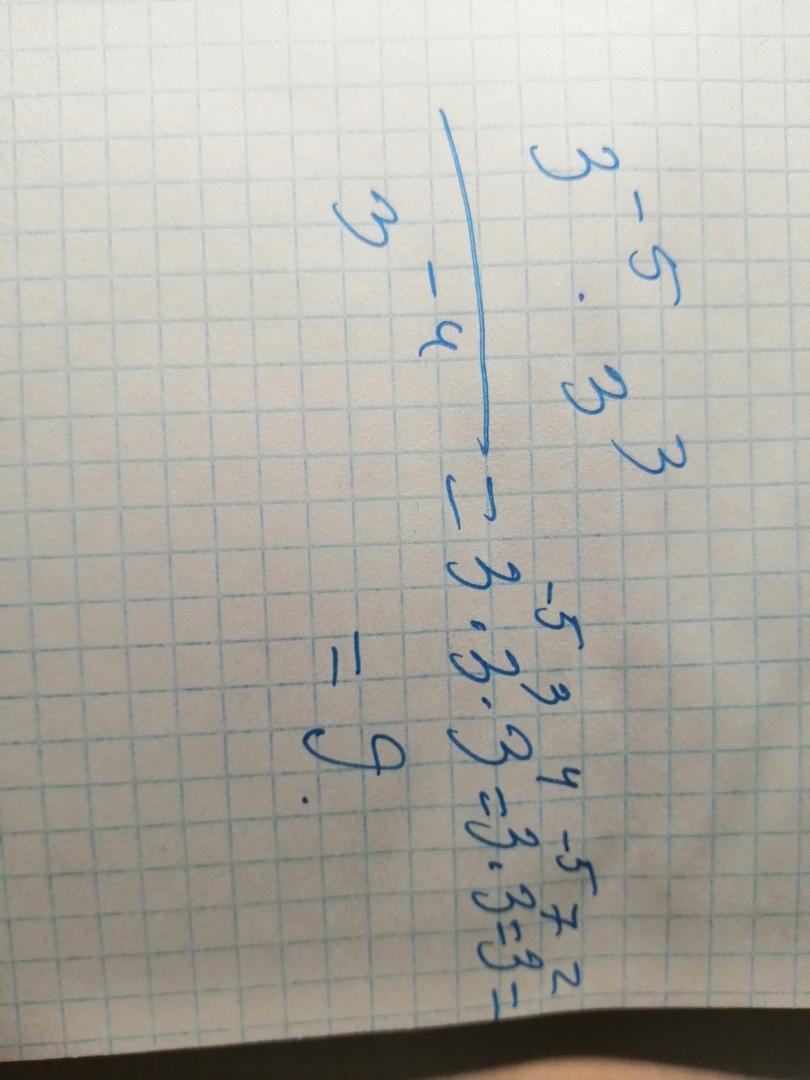 3⁻⁵ · 3³
3⁻⁴ = 3⁻⁵ · 3³ · 3⁴ = 3⁻⁵ · 3⁷ = 3² =
= 9.